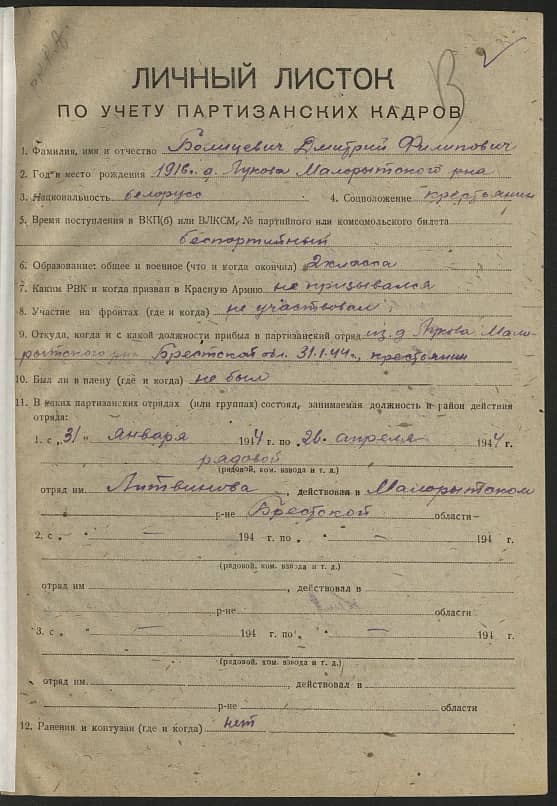 2
ЛИЧНЫЙ ЛИСТОК
ПО УЧЕТУ ПАРТИЗАНСКИХ КАДРОВ
1. Фамилия, имя и отчество Болицевич Дмитрий Филипович
2. Год и место рождения 1916 г. д. Лукова Малорытского р-на
3. Национальность белорусс 4. Соцположение крестьянин
5. Время поступления в ВКП(б) или ВЛКСМ, № партийного или комсомольского билета
беспортийный
6. Образование: общее и военное (что и когда окончил) 2 класса
7. Каким РВК и когда призван в Красную Армию не призывался
8. Участие на фронтах (где и когда) не участвовал
9. Откуда, когда и с какой должности прибыл в партизанский отряд из д Лукова Мало-
рытского р-на Брестской обл. 31.1.44 г., крестьянин
10. Был ли в плену (где и когда) не был
11. В каких партизанских отрядах (или группах) состоял, занимаемая должность и район действия
отряда:
1. с „31" января 1944 г. по 26 апреля 1944 г.
рядовой
(рядовой, ком. взвода и т. д.)
отряд им. Литвинова, действовал в Малорытском
р-не Брестской области
2. с „ " — 194 г. по „ " — 194 г.
(рядовой, ком. взвода и т. д.)
отряд им , действовал в
р-не области
3. с „ " — 194 г. по „ " — 194 г.
(рядовой, ком. взвода и т. д.)
отряд им. , действовал в
р-не области
12. Ранения и контузии (где и когда) нет